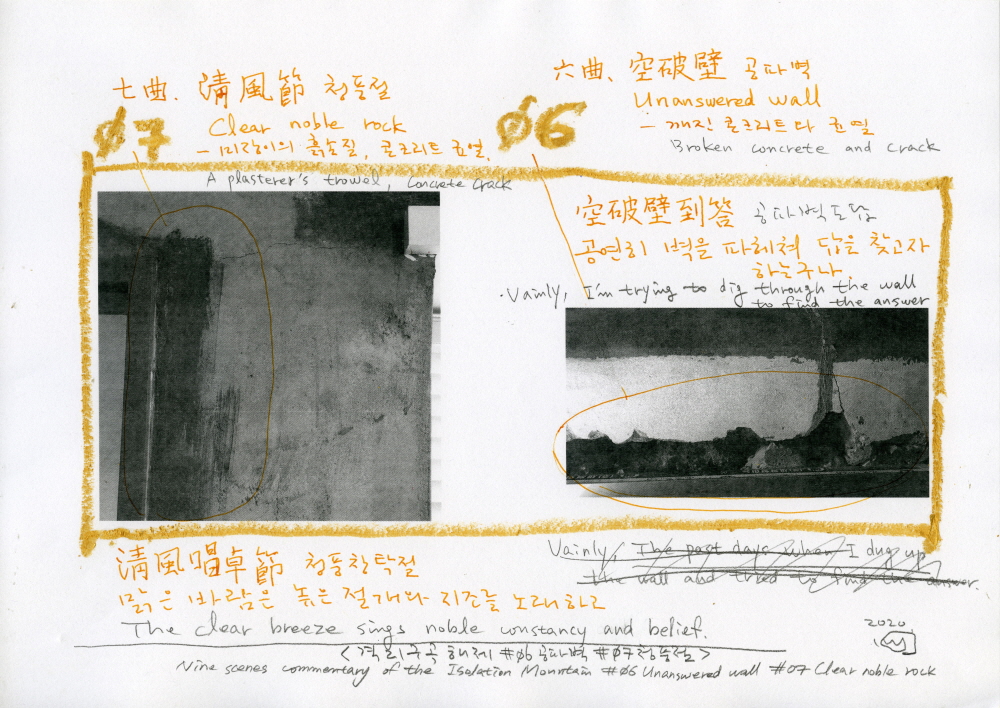 七曲、清風節 청풍절
Ø7
Clear noble rock
– 미장이의 흙손질, 콘크리트 균열.
A plasterer's trowel, Concrete Crack
六曲、空破壁 공파벽
Ø6
Unanswered wall
– 깨진 콘크리트와 균열
Broken concrete and crack
空破壁到答 공파벽도답
공연히 벽을 파헤쳐 답을 찾고자
하는구나
·Vainly, I'm trying to dig through the wall
to find the answer
清風唱卓節 청풍창탁절
맑은 바람은 높은 절개와 지조를 노래하고
The clear breeze sings noble constancy and belief.
Vainly, The past days when I dug up
the wall and tried to find the answer.
2020
<격리구곡 해제 #Ø6 공파벽 #Ø7 청풍절>
Nine scenes commentary of the Isolation Mountain #06 Unanswered wall #07 Clear noble rock